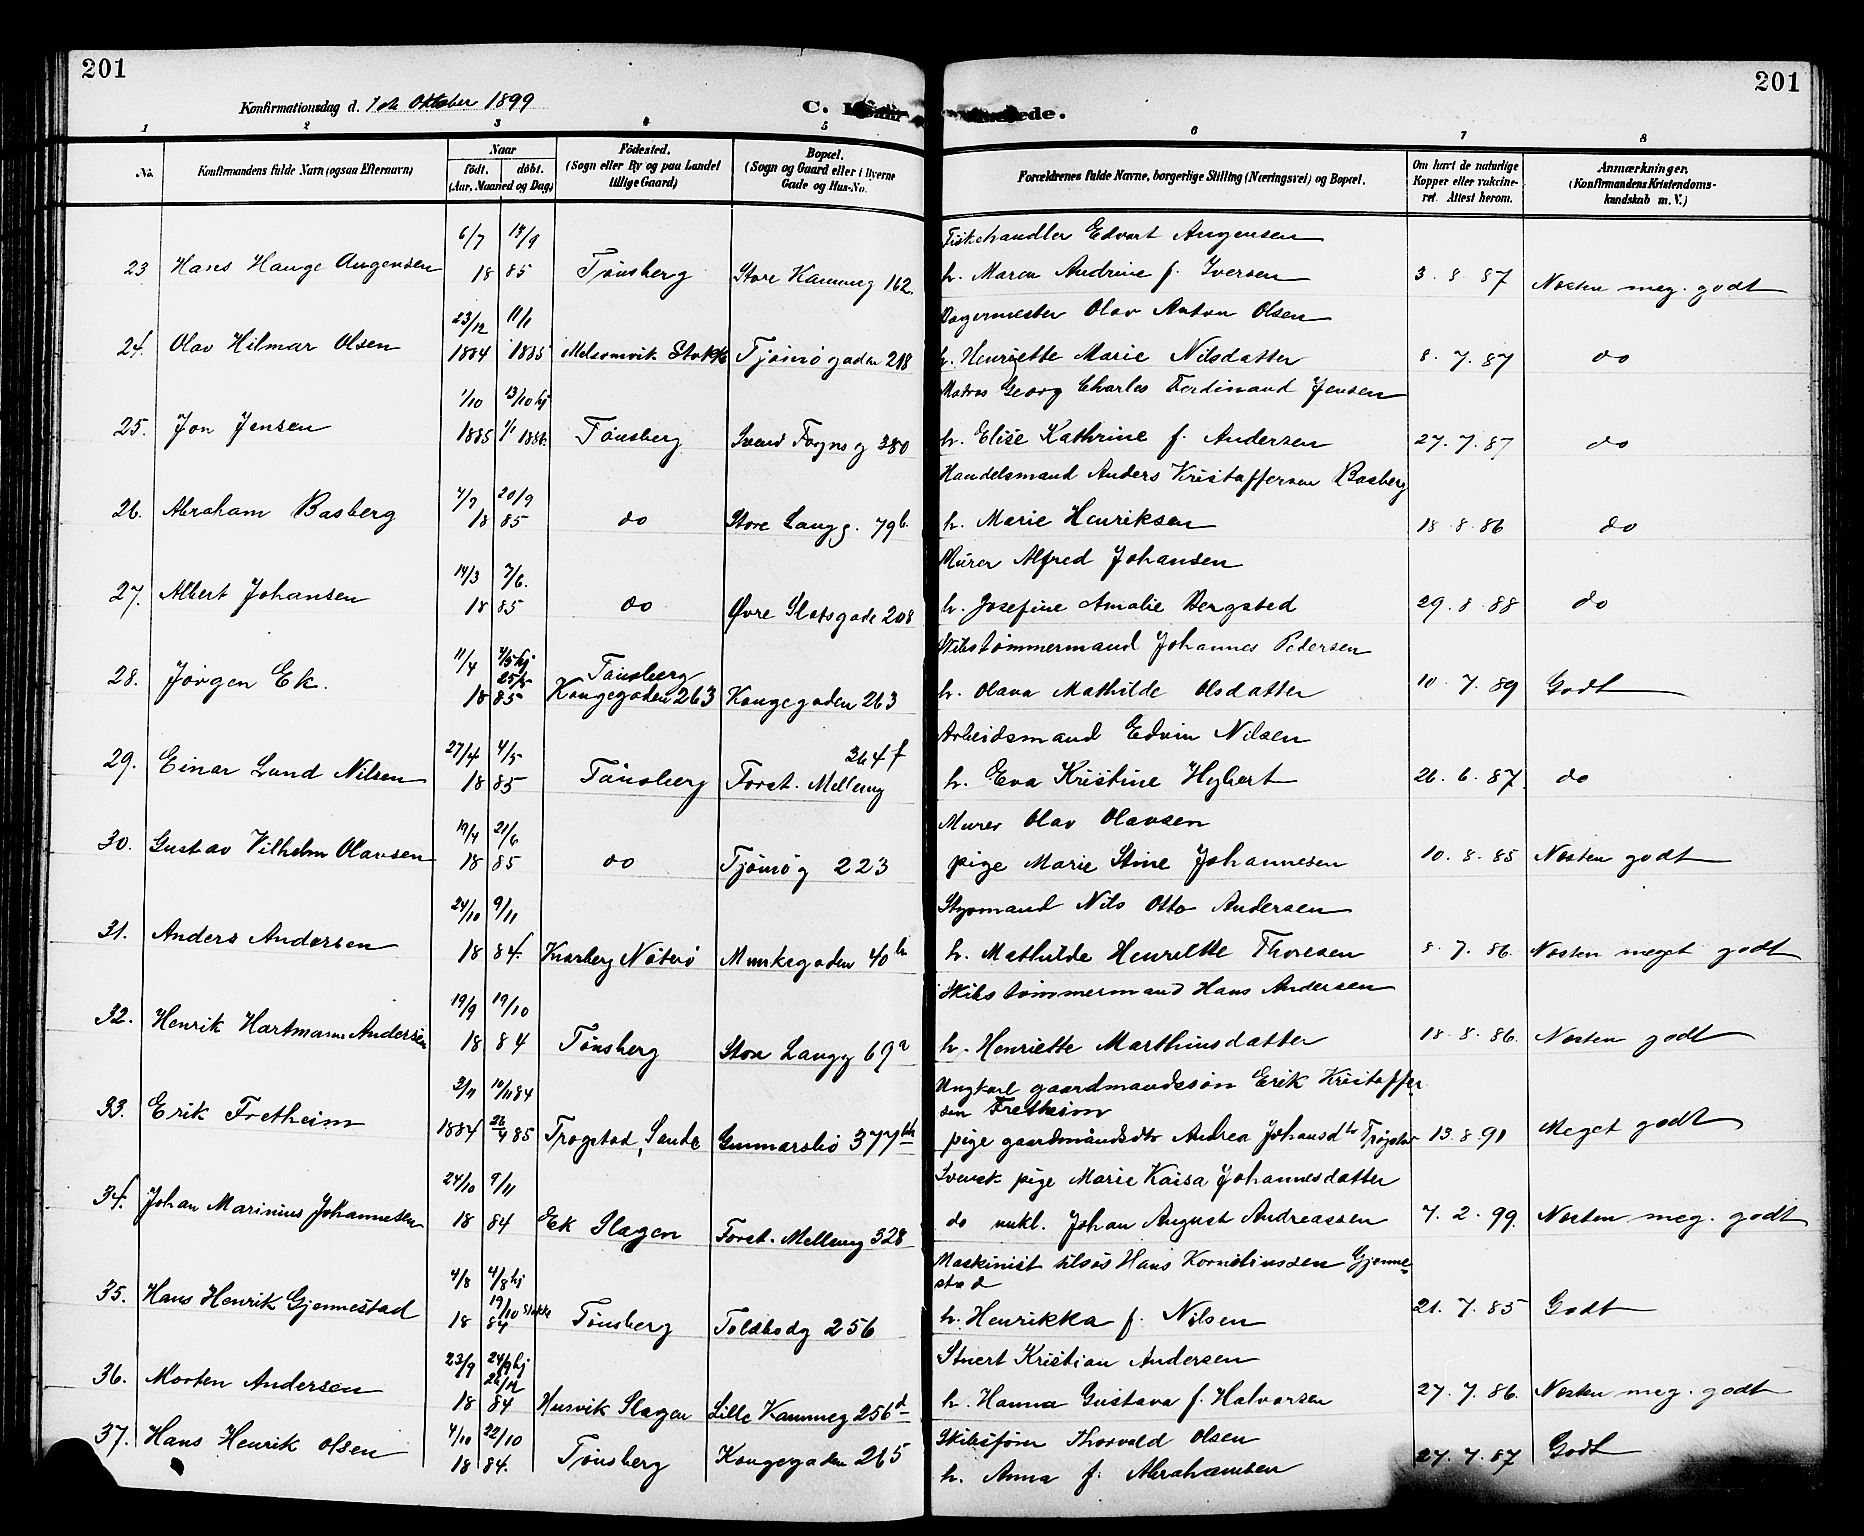 201
201
Konfirmationsdag d. 1ste Oktober 1899
C.
1 2 3 4 5 6 7 8
No.
Konfirmandens fulde Navn (ogsaa Efternavn)
Naar
födt. döbt.
(Aar, Maaned og Dag)
Födested.
(Sogn eller By og paa Landet
tillige Gaard)
Bopæl.
(Sogn og Gaard eller i Byerne
Gade og Hus-No.
Forældrenes fulde Navne, borgerlige Stilling (Næringsvei) og Bopæl.
Om havt de naturlige
Kopper eller vakcine-
ret. Attest herom.
Anmærkninger.
(Konfirmandens Kristendoms-
kundskab m. V.)
6/7 14/9 Fiskehandler Edvart Angensen
23 Hans Hauge Angensen 18 85 Tönsberg Store Kanneng 162. h. Maren Andrine f. Iversen 3. 8. 87 Nesten meg. godt
23/12 11/1 Bogermester Olav Anton Olsen
24. Olav Hilmar Olsen 1884 1885 Melsomvik Stokke Tjömögaden 218 h. Henriette Marie Nilsdatter 8. 7. 87 do
1/10 13/10 hj Matros Georg Charles Ferdinand Jensen
25. Jon Jensen 1885 1/1 1886 Tönsberg Svend Foyns g 380 h. Elise Kathrine f. Andersen 27. 7. 87 do
7/9 20/9 Handelsmand Anders Kristoffersen Basberg
26. Abraham Basberg 18 85 do Store Langg. 79b h. Marie Henriksen 18. 8. 86 do
14/3 7/6. Murer Alfred Johansen
27. Albert Johansen 18 85 do Øvre Slotsgade 208 h. Josefine Amalie Bergsted 29. 8. 88 do
11/4 4/5 hj Tönsberg Skibstömmermand Johannes Pedersen
28. Jörgen Ek. 18 85 Kongegaden 263 Kongegaden 263 h. Olava Mathilde Olsdatter 10. 7. 89 Godt
27/4 4/5 264 f Arbeidsmand Edvin Nilsen
29. Einar Lund Nilsen 18 85 Tönsberg Forst. Melleng h. Eva Kristine Hybert 26. 6. 87 do
19/4 21/6 Murer Olav Olavsen
30. Gustav Vilhelm Olavsen 18 85 do Tjömög 223 pige Marie Stine Johannesen 10. 8. 85 Nesten godt
24/10 9/11 Styrmand Nils Otto Andersen
31. Anders Andersen 18 84. Knarberg Nöterö Munkegaden 40h h. Mathilde Henriette Thoresen 8. 7. 86. Nesten meget godt
19/9 19/10 Skibstömmermand Hans Andersen
32. Henrik Hartmann Andersen 18 84 Tönsberg Store Langg 69a h. Henriette Marthinsdatter 18. 8. 86. Nesten godt
2/11 10/11 84 Ungkarl gaardmandssön Erik Kristoffer
sen Fretheim
33. Erik Fretheim 1884 26/4 85 Trogstad, Sende Gunnarsbö 377 pige gaardmandsdtr Andrea Johansdtr Trøgstad 13. 8. 91 Meget godt
24/10 9/11 Svensk pige Marie Kaisa Johannesdatter
34. Johan Marinius Johannesen 18 84 Ek Slagen Forst. Melleng 328 do unkl. Johan August Andreassen 7. 2. 99. Nesten meg. godt
4/8 4/8 hj Maskinist tilsøs Hans Kornéliussen Gjenne-
stad
35. Hans Henrik Gjennestad 18 19/10 Stokke 84 Tönsberg Toldbodg 256 h. Henrikka f. Nilsen 21. 7. 85 Godt
23/9 24/9 hj Stuert Kristian Andersen
36. Morten Andersen 18 26/12 84 Husvik Slagen Lille Kanneg 256d h. Hanna Gustava f. Halvorsen 27. 7. 86. Nesten meg. godt
4/10 22/10 Skibsförer Thorvald Olsen
37. Hans Henrik Olsen 18 84. Tönsberg Kongegaden 265 h. Anna f. Abrahamsen 27. 7. 87 Godt